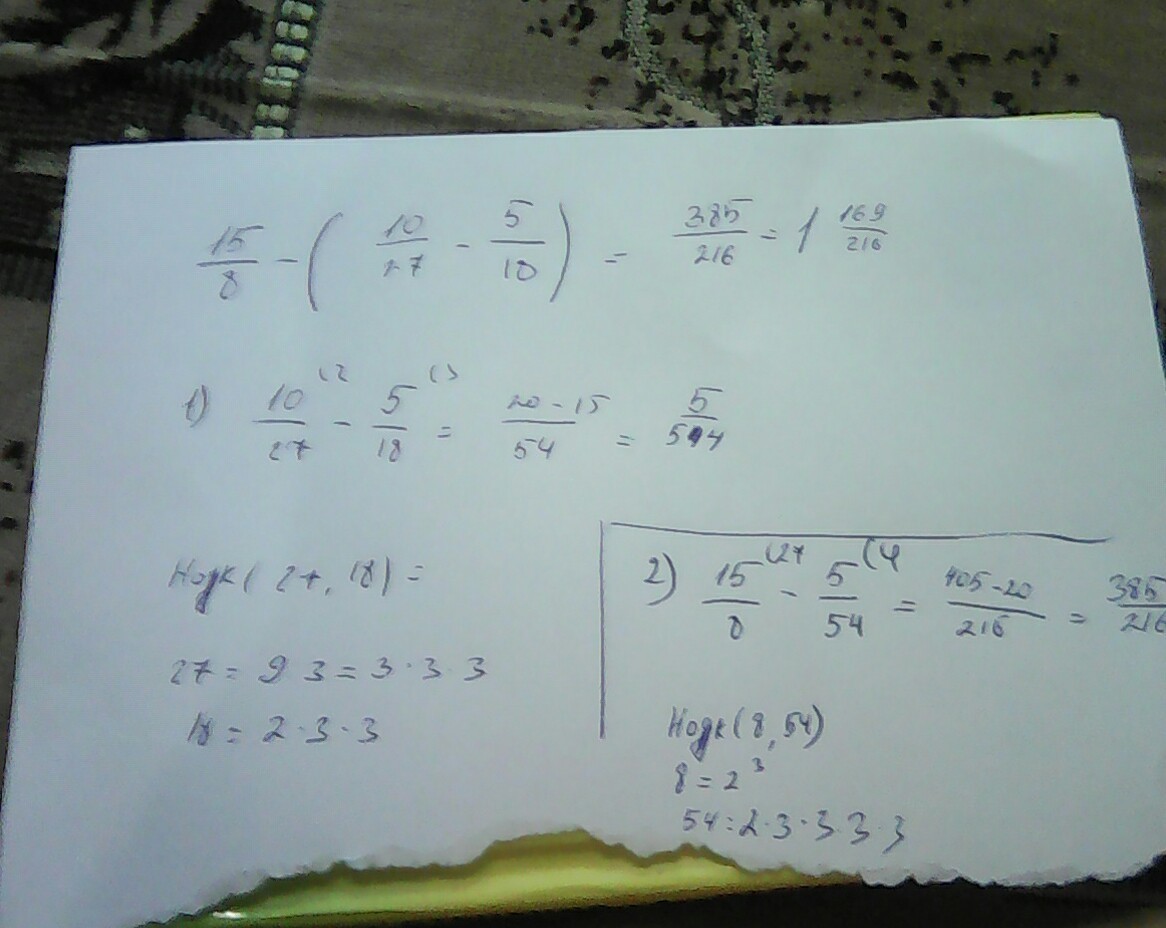 15/8 - ( 10/27 - 5/18 ) = 385/216 = 1 169/216
1) 10/27 (2 - 5/18 (3 = 20 - 15/54 = 5/54
Нодк ( 27, 18 ) =
27 = 9 3 = 3 · 3 · 3
18 = 2 · 3 · 3
2) 15/8 (27 - 5/54 (4 = 405 - 20/216 = 385/216
Нодк ( 8, 54)
8 = 2³
54 = 2 · 3 · 3 · 3 · 3